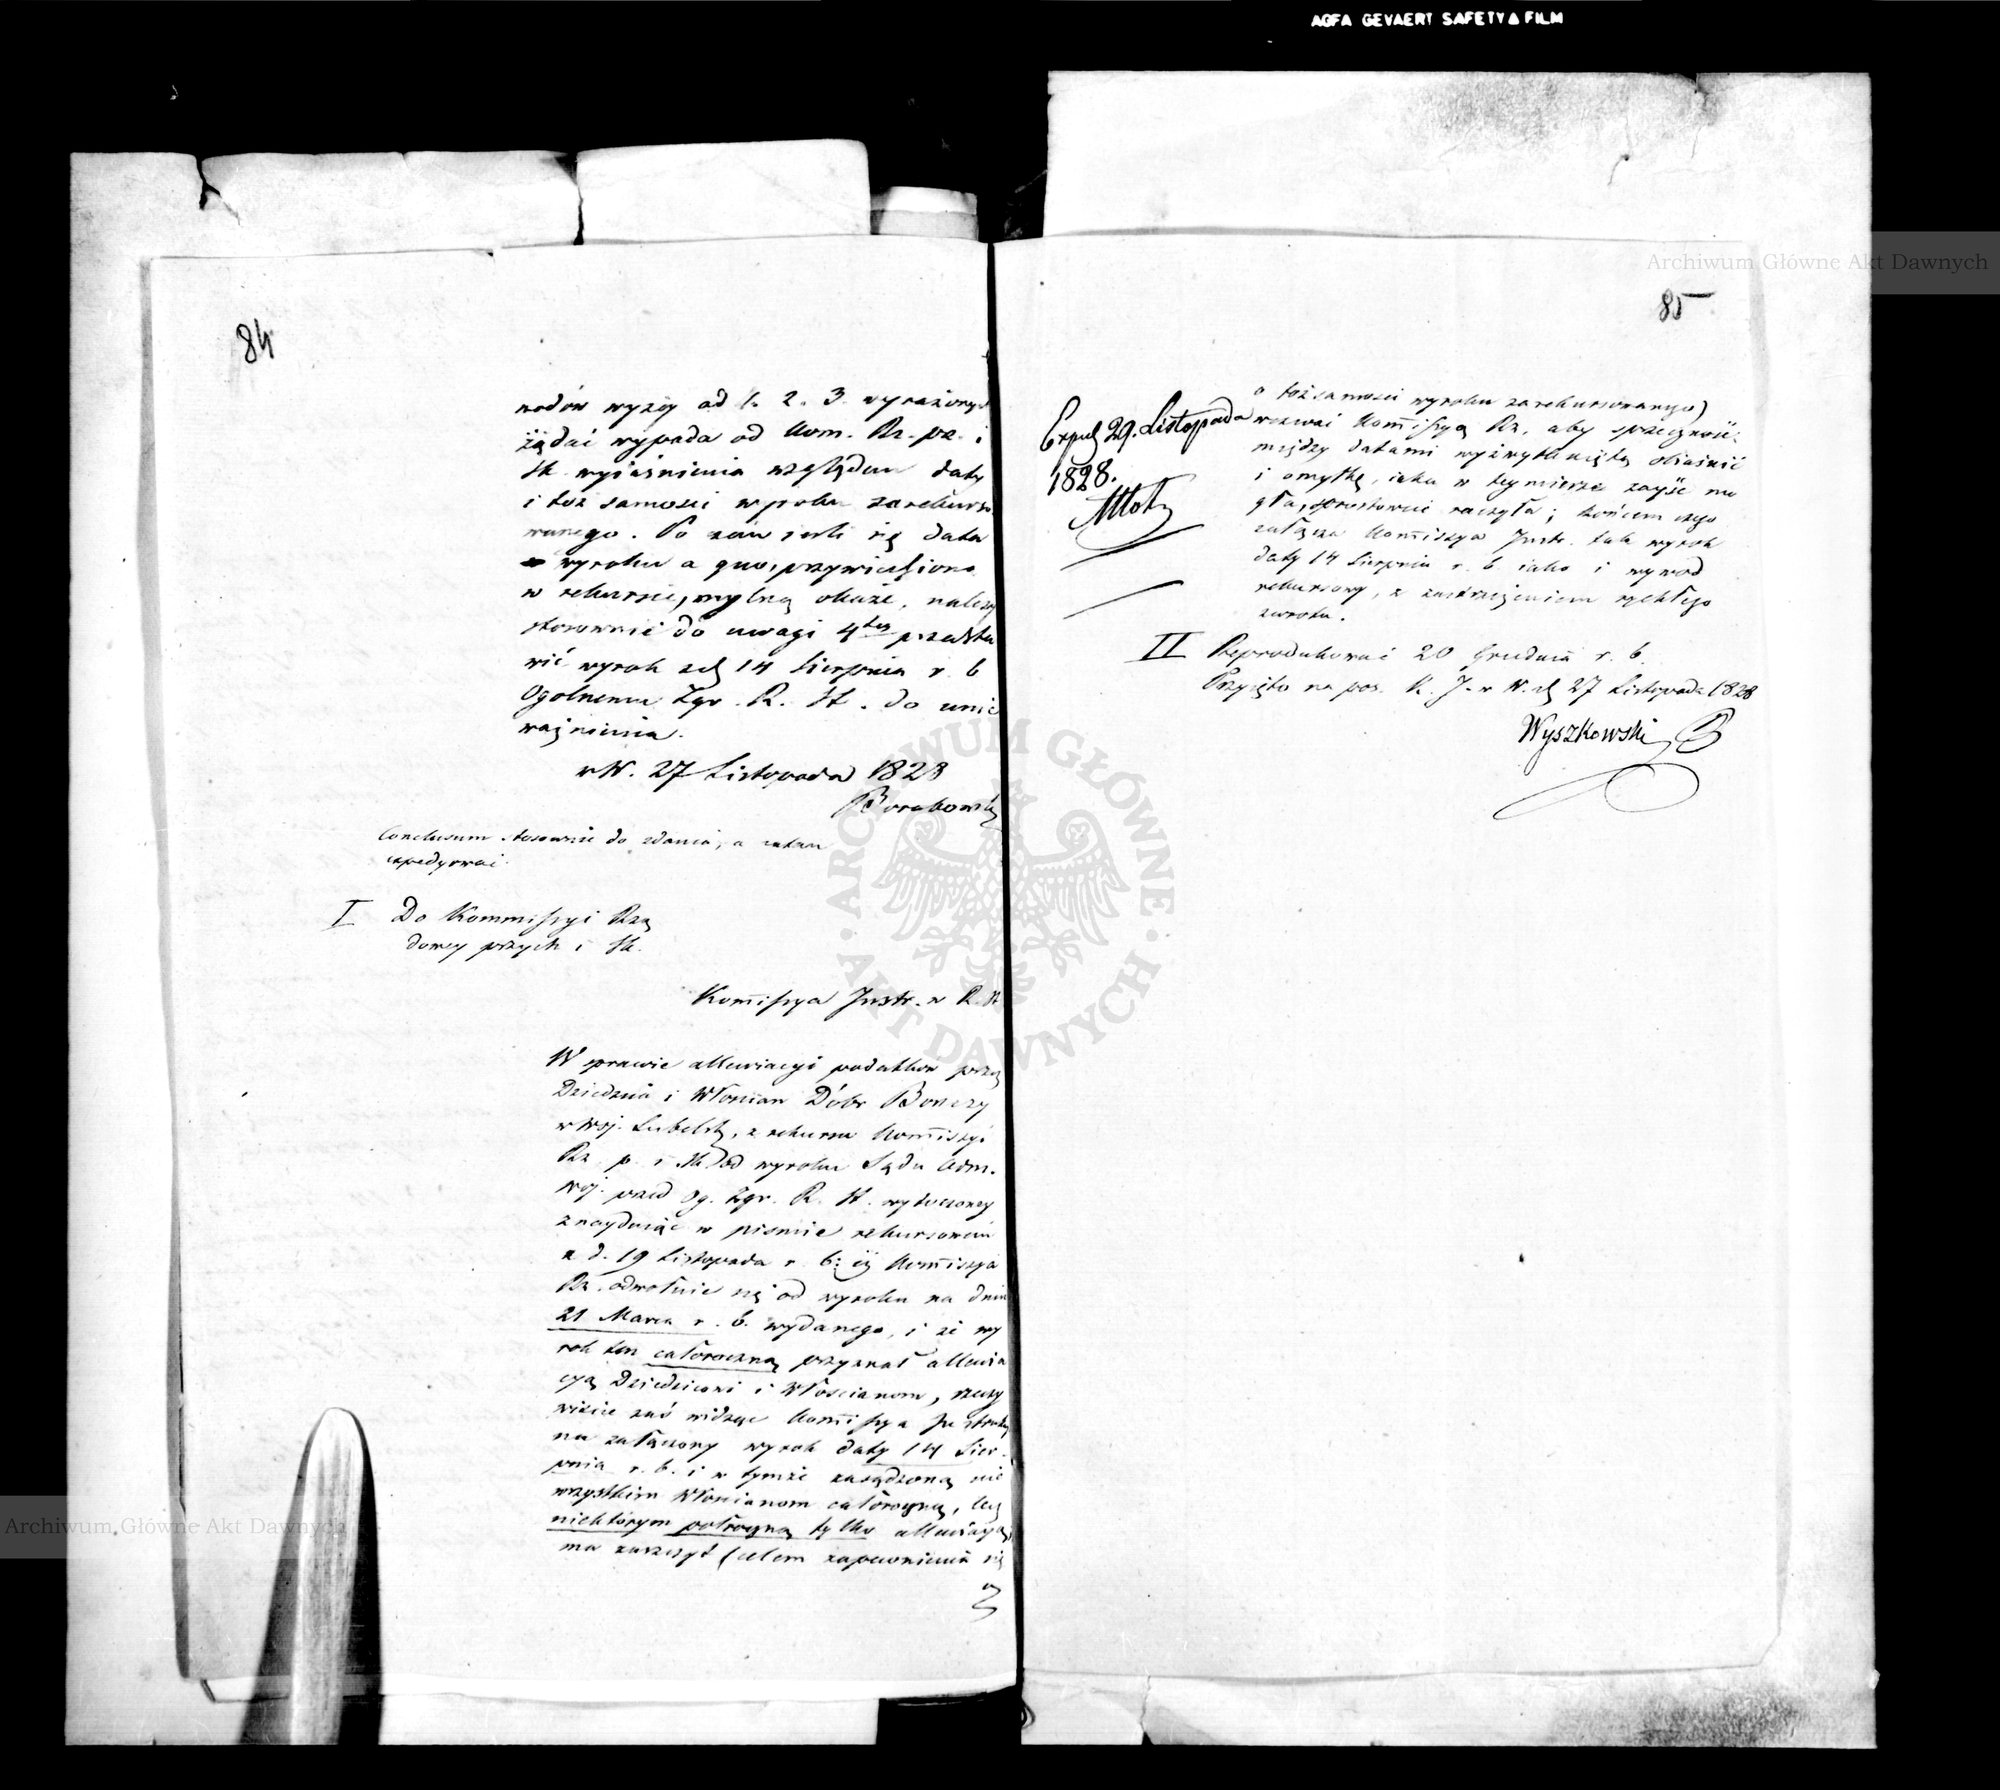 AGFA GEVAERT SAFETY FILM
Archiwum Główne Akt Dawnych
84
wodów wyżey od 1. 2. 3. wyrażonych
żądać wypada od Kom. Rz. prz. i
Sk. wyjaśnienia względem daty
i toż samości wyroku zarekurso
wanego. Po zaś jeśli się data
wyroku a quo, przywiedziona
w rekursie, mylną okaże, należy
stosownie do uwagi 4tey przedsta
wić wyrok z d. 14 Sierpnia r. b
Ogolnemu Zgr. R. St. do unie
ważnienia.
w W. 27 Listopada 1828
Conclusum stosownie do zdania, a zatem
expedyować.
I Do Kommissyi Rzą
dowey przych i Sk.
Kommissya Instr. w R. St
W sprawie allewiacyi podatków przez
Dziedzica i Włościan Dóbr Bończy
w Woj. Lubelsk, z rekursu Kommissyi
Rz. p. i Sk. od wyroku Sądu Adm.
Woj. przed Og. Zgr. R. St. wytoczoney
znayduiąc w piśmie rekursowém
z d. 19 Listopada r. b: iż Kommissya
Rz. odwołuie się od wyroku na dniu
21 Marca r. b. wydanego, i że wy
rok ten całoroczną przyznał allewia
cyą Dziedzicowi i Włościanom, rzeczy
wiście zaś widząc Kommissya Instrukcy
na załączony wyrok daty 14 Sier-
pnia r. b. i w tymże zasądzoną nie
wszystkim Włościanom całoroczną, lecz
niektórym półroczną tylko allewiacyą,
ma zaszczyt (celem zapewnienia się
85
Exped 29. Listopada
1828.
o tożsamości wyroku zarekursowanego)
wezwać Kommissyą Rz. aby sprzeczność
między datami wyżwytkniętą obiaśnić
i omyłkę, iaka w teymierze zayść mo
gła, sprostować raczyła; końcem czego
załącza Kommissya Instr. tak wyrok
daty 14 Sierpnia r. b. iako i wywod
rekursowy, z zastrzeżeniem rychłego
zwrotu.
II Reprodukować 20 Grudnia r. b.
Przyięto na pos. K. J. w W. d. 27 Listopada 1828
Wyszkowski
ARCHIWUM GŁÓWNE AKT DAWNYCH
Archiwum Główne Akt Dawnych